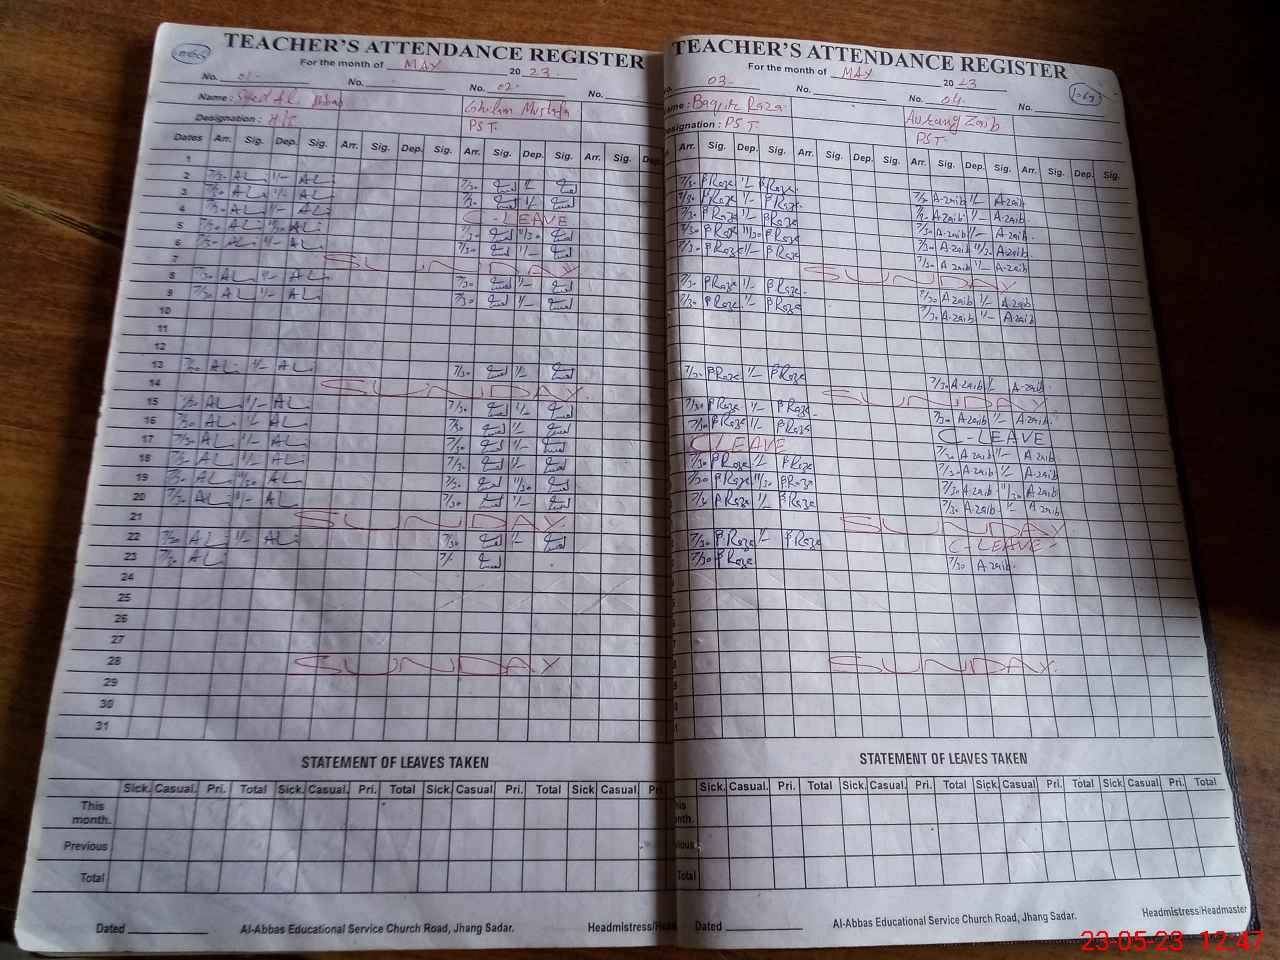 TEACHER'S ATTENDANCE REGISTER
For the month of MAY 2023.
No. 01- No. No. 02- No.
Name: Ghulam Mustafa
Designation: PST.
Dates Arr. Sig. Dep. Sig. Arr. Sig. Dep. Sig. Arr. Sig. Dep. Sig. Arr. Sig. Dep.
1
2 7/30 AL 1/- AL 7/30 1/-
3 7/30 AL 1/- AL 7/30 1/-
4 7/30 AL 1/- AL C-LEAVE
5 7/30 AL 11/30 AL 7/30 11/30
6 7/30 AL 1/- AL 7/30 1/-
7 SUNDAY
8 7/30 AL 1/- AL 7/30 1/-
9 7/30 AL 1/- AL 7/30 1/-
10
11
12
13 7/30 AL 1/- AL 7/30 1/-
14 SUNDAY.
15 7/30 AL 1/- AL 7/30 1/-
16 7/30 AL 1/- AL 7/30 1/-
17 7/30 AL 1/- AL 7/30 1/-
18 7/30 AL 1/- AL 7/30 1/-
19 7/30 AL 11/30 AL 7/30 11/30
20 7/30 AL 1/- AL 7/30 1/-
21 SUNDAY.
22 7/30 AL 1/- AL 7/30 1/-
23 7/30 AL 7/-
24
25
26
27
28 SUNDAY
29
30
31
STATEMENT OF LEAVES TAKEN
Sick. Casual. Pri. Total Sick. Casual. Pri. Total Sick. Casual. Pri. Total Sick Casual. Pri.
This month.
Previous
Total
Dated
Al-Abbas Educational Service Church Road, Jhang Sadar.
Headmistress/Hea
TEACHER'S ATTENDANCE REGISTER
For the month of MAY 2023
03- No. No. 04. No.
ame: Baqir Raza Aurang Zaib
esignation: PST. PST.
Arr. Sig. Dep. Sig. Arr. Sig. Dep. Sig. Arr. Sig. Dep. Sig. Arr. Sig. Dep. Sig.
7/30 BRaze 1/- BRaze 7/30 A-zaib 1/- A-zaib
7/30 BRaze 1/- BRaze 7/30 A-zaib 1/- A-zaib
7/30 BRaze 1/- BRaze 7/30 A-zaib 1/- A-zaib
7/30 BRaze 11/30 BRaze 7/30 A-zaib 11/30 A-zaib
7/30 BRaze 1/- BRaze 7/30 A-zaib 1/- A-zaib
SUNDAY
7/30 BRaze 1/- BRaze 7/30 A-zaib 1/- A-zaib
7/30 BRaze 1/- BRaze 7/30 A-zaib 1/- A-zaib
7/30 BRaze 1/- BRaze 7/30 A-zaib 1/- A-zaib
SUNDAY.
7/30 BRaze 1/- BRaze 7/30 A-zaib 1/- A-zaib
7/30 BRaze 1/- BRaze C-LEAVE
C LEAVE 7/30 A-zaib 1/- A-zaib
7/30 BRaze 1/- BRaze 7/30 A-zaib 1/- A-zaib
7/30 BRaze 11/30 BRaze 7/30 A-zaib 11/30 A-zaib
7/30 BRaze 1/- BRaze 7/30 A-zaib 1/- A-zaib
SUNDAY.
7/30 BRaze 1/- BRaze C-LEAVE-
7/30 BRaze 7/30 A-zaib
SUNDAY.
STATEMENT OF LEAVES TAKEN
Sick. Casual. Pri. Total Sick. Casual. Pri. Total Sick. Casual. Pri. Total Sick. Casual. Pri. Total
his onth.
vious
Total
Dated
Al-Abbas Educational Service Church Road, Jhang Sadar.
Headmistress/Headmaster
23-05-23 12:47